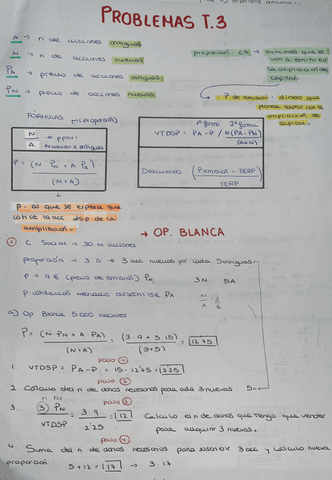 PROBLEMAS T.3
A → nº de acciones antiguas
N → nº de acciones nuevas
PA → precio de acciones antiguas
PN → precio de acciones nuevas
proporción
acciones que se
van a emitir en
la ampliación de
capital
P de emisión: dinero que
la ampliación de
capital
FÓRMULAS
(proporción)
N / A → prop.
Nuevas x antiguas
P = (N · PN + A · PA) / (N+A)
1ª forma 2ª forma
VTDSP = PA - P / N(PA-PN) / (A+N)
Descuento (Pemisión - TERP) / TERP
P. al que se espera que
cotice la acc dsp de la
ampliación
→ OP. BLANCA
1 C. Social → 30 M acciones
proporción → 3:5 → 3 acc nuevas por cada 5 antiguas
P → 9 € (precio de emisión) PN 3N 5A
P cotización mercado 15 € PA N/A = 3/5
a) Op Blanca 5.000 acciones
P = (N · PN + A · PA) / (N+A) = (3 · 9 + 5 · 15) / (3+5) = 12'75
paso 1
1. VTDSP = PA - P = 15 - 12'75 = 2'25
paso 2
2. Cálculo del nº de dchos necesarios para cada 3 nuevas: 5
paso 3
3. (3) PN / VTDSP = 3 · 9 / 2'25 = 12 Calculo el nº de dchos que tengo que vender
para adquirir 3 nuevas.
paso 4
4. Suma del nº de dchos necesarios para suscribir 3 acc y cálculo nueva
proporción: 5 + 12 = 17 → 3:17